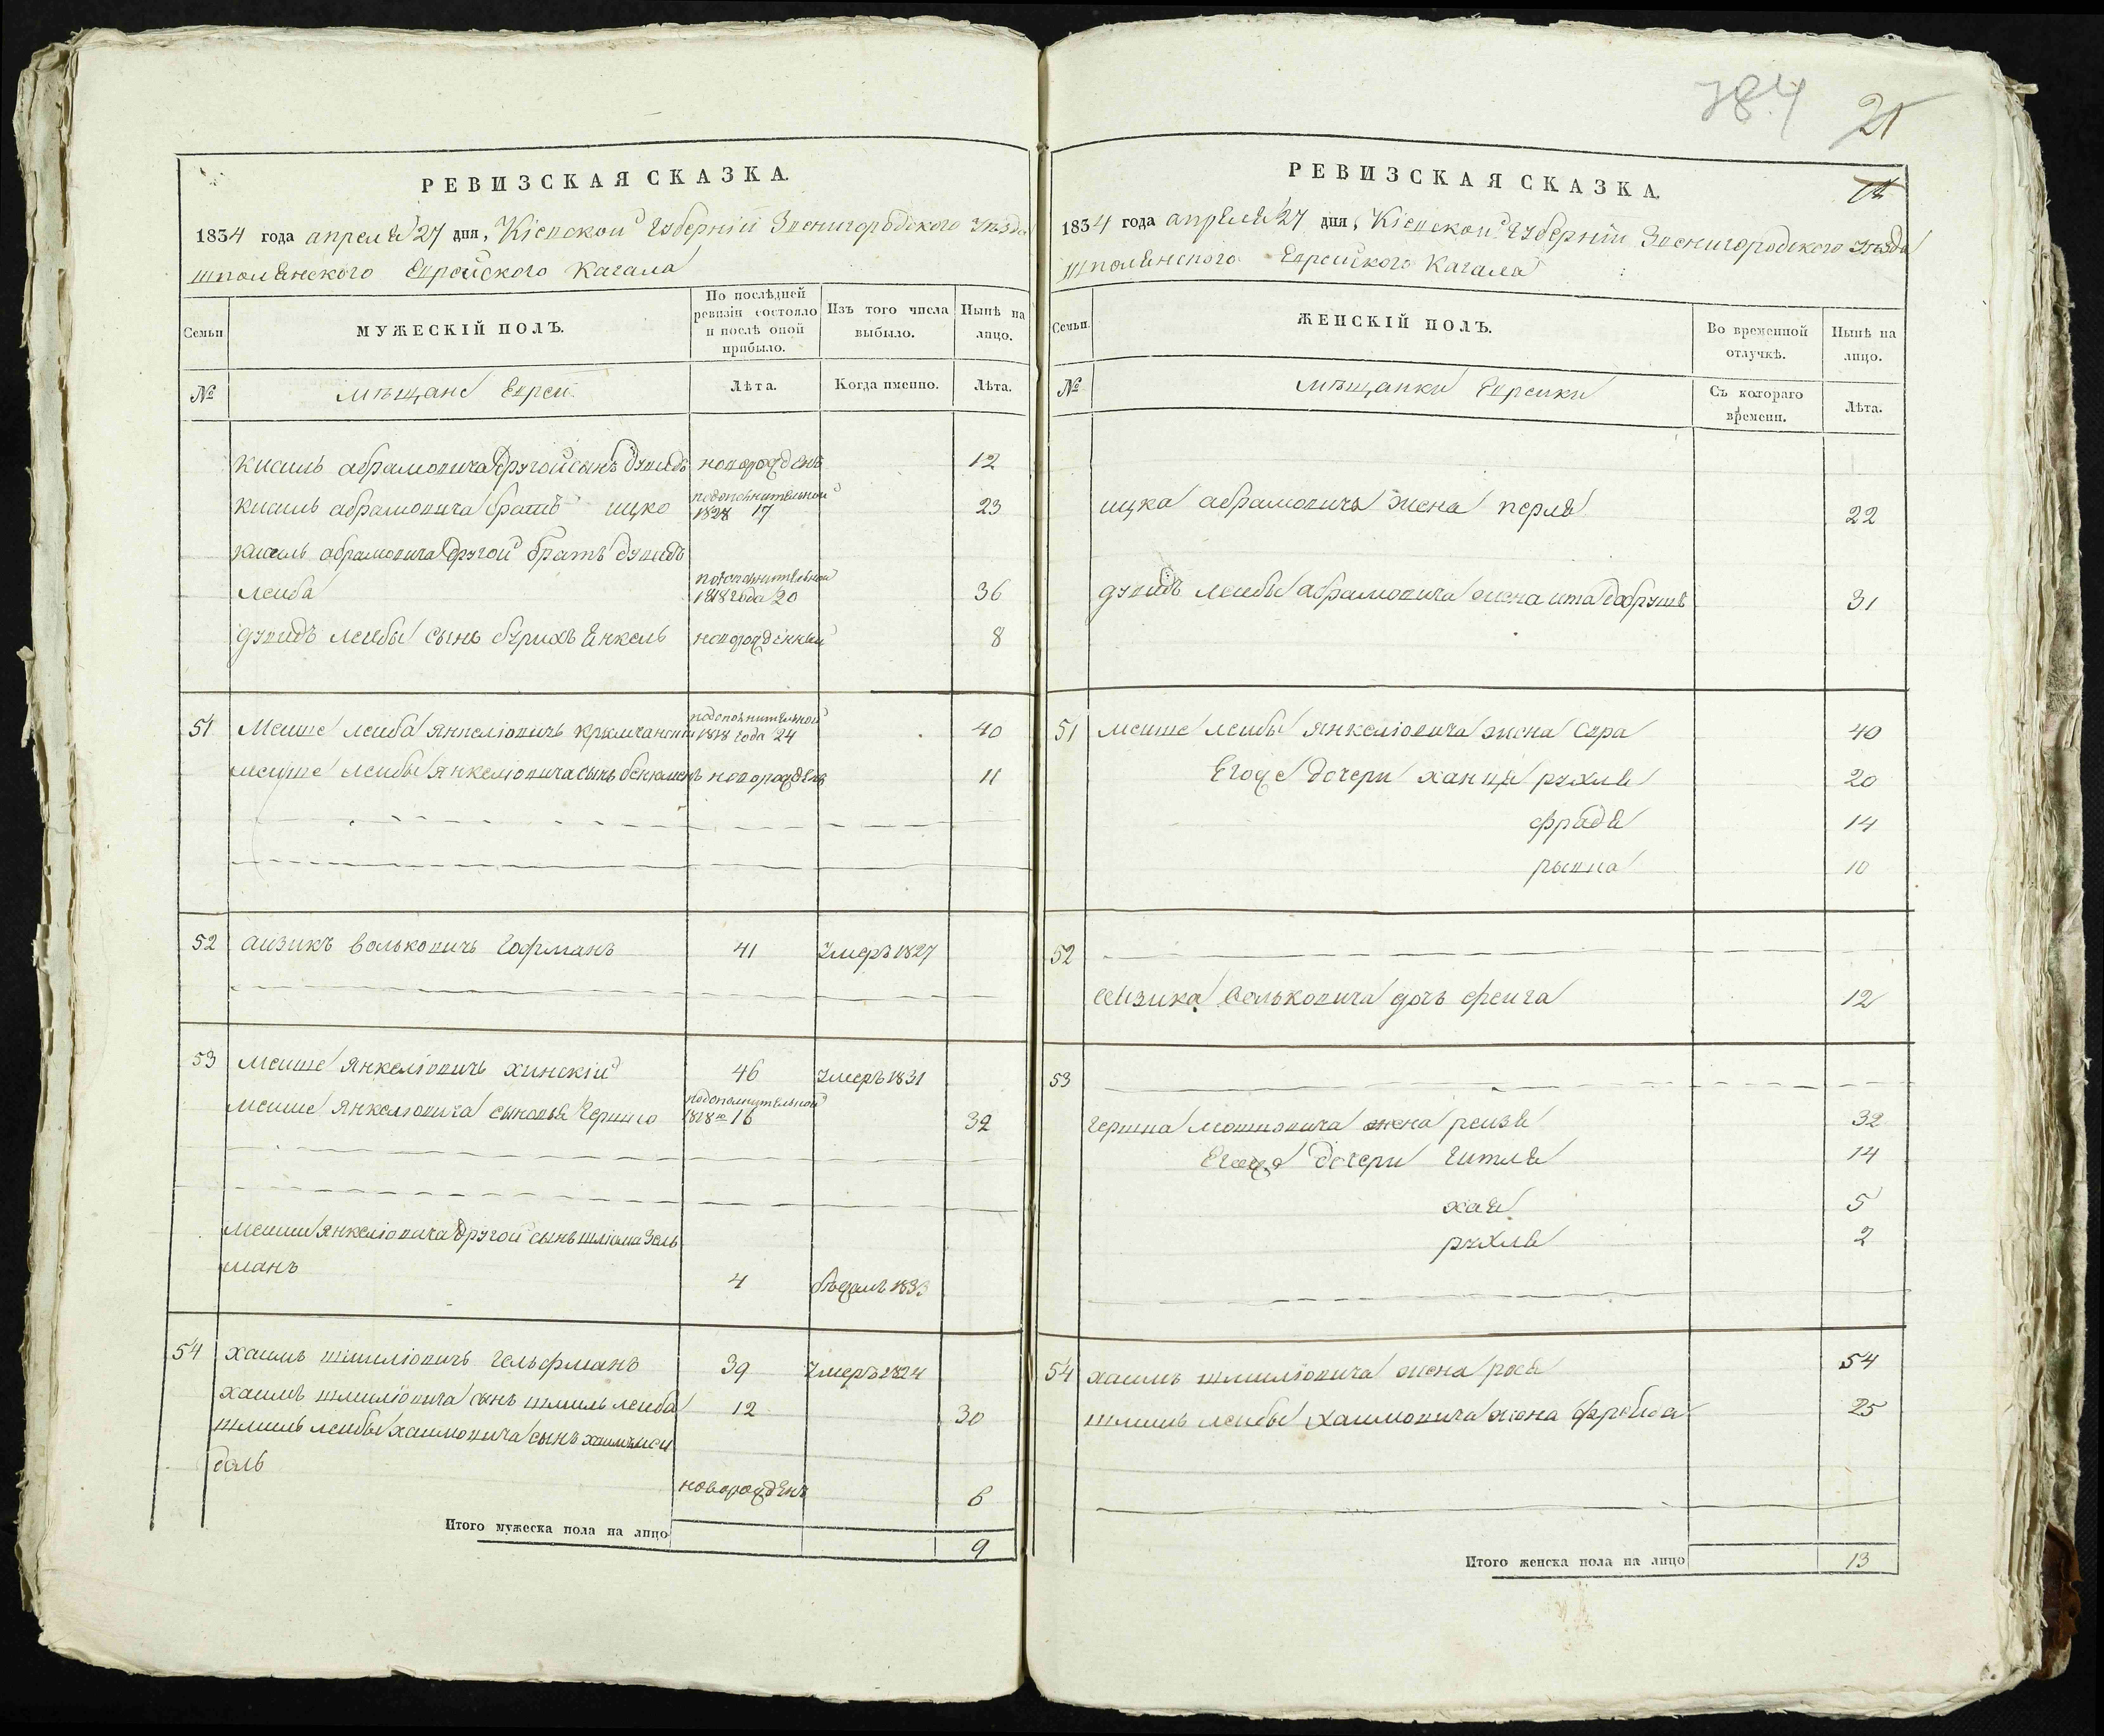 784 21
РЕВИЗСКАЯ СКАЗКА.
1834 года апреля 27 дня, Кіевской Губерніи Звенигородского Уѣзда
шполянского Еврейского Кагала
Семьи
МУЖЕСКІЙ ПОЛЪ.
По послѣдней ревизіи состояло и послѣ оной прибыло.
Изъ того числа выбыло.
Нынѣ на лицо.
№
мѣщане Евреи
Лѣта.
Когда именно.
Лѣта.
кисиль абрамовича другой сынъ дувидъ новорожденъ 12
кисиль абрамовича братъ ицко подополнительной 1828 17 23
кисель абрамовича другой братъ дувидъ
лейба подополнительной 1818 года 20 36
дувидъ лейбы сынъ бурихъ Енкель новорожденный 8
51 Мейше лейба янкеліовичь крымчанскій подополнительной 1818 года 24 40
мейше лейбы янкеліовича сынъ бенюменъ новорожденъ 11
52 айзикъ волькович Гофманъ 41 Умеръ 1827
53 мейше янкеліовичь хинскій 46 Умеръ 1831
мейше янкеліовича сыновья Гершко подополнительной 1818 го 16 32
мейши янкеліовича другой сынъ шліома Зель
манъ 4 бѣжалъ 1833
54 хаимъ шмиліовичь Гельфманъ 39 Умеръ 1824
хаимъ шмиліовича сынъ шмиль лейба 12 30
шмиль лейбы хаимовича сынъ хаимъ иси
доль новорожденъ 6
Итого мужеска пола на лицо 9
РЕВИЗСКАЯ СКАЗКА.
1834 года апреля 27 дня, Кіевской Губерніи Звенигородского Уѣзда
шполянского Еврейского Кагала
Семьи.
ЖЕНСКІЙ ПОЛЪ.
Во временной отлучкѣ.
Нынѣ на лицо.
№
мѣщанки Еврейки
Съ котораго времени.
Лѣта.
ицка абрамовича жена перля 22
дувидъ лейбы абрамовича жена ита добрушъ 31
51 мейше лейбы янкеліовича жена сура 40
Егоже дочери ханця рухля 20
фрадя 14
рывка 10
52
айзика волькович дочь фейга 12
53
Гершка мошковича жена рейзя 32
Егоже дочери Гитля 14
хая 5
рухля 2
54 хаимъ шмиліовича жена рося 54
шмиль лейбы хаимовича жена фрейда 25
Итого женска пола на лицо 13